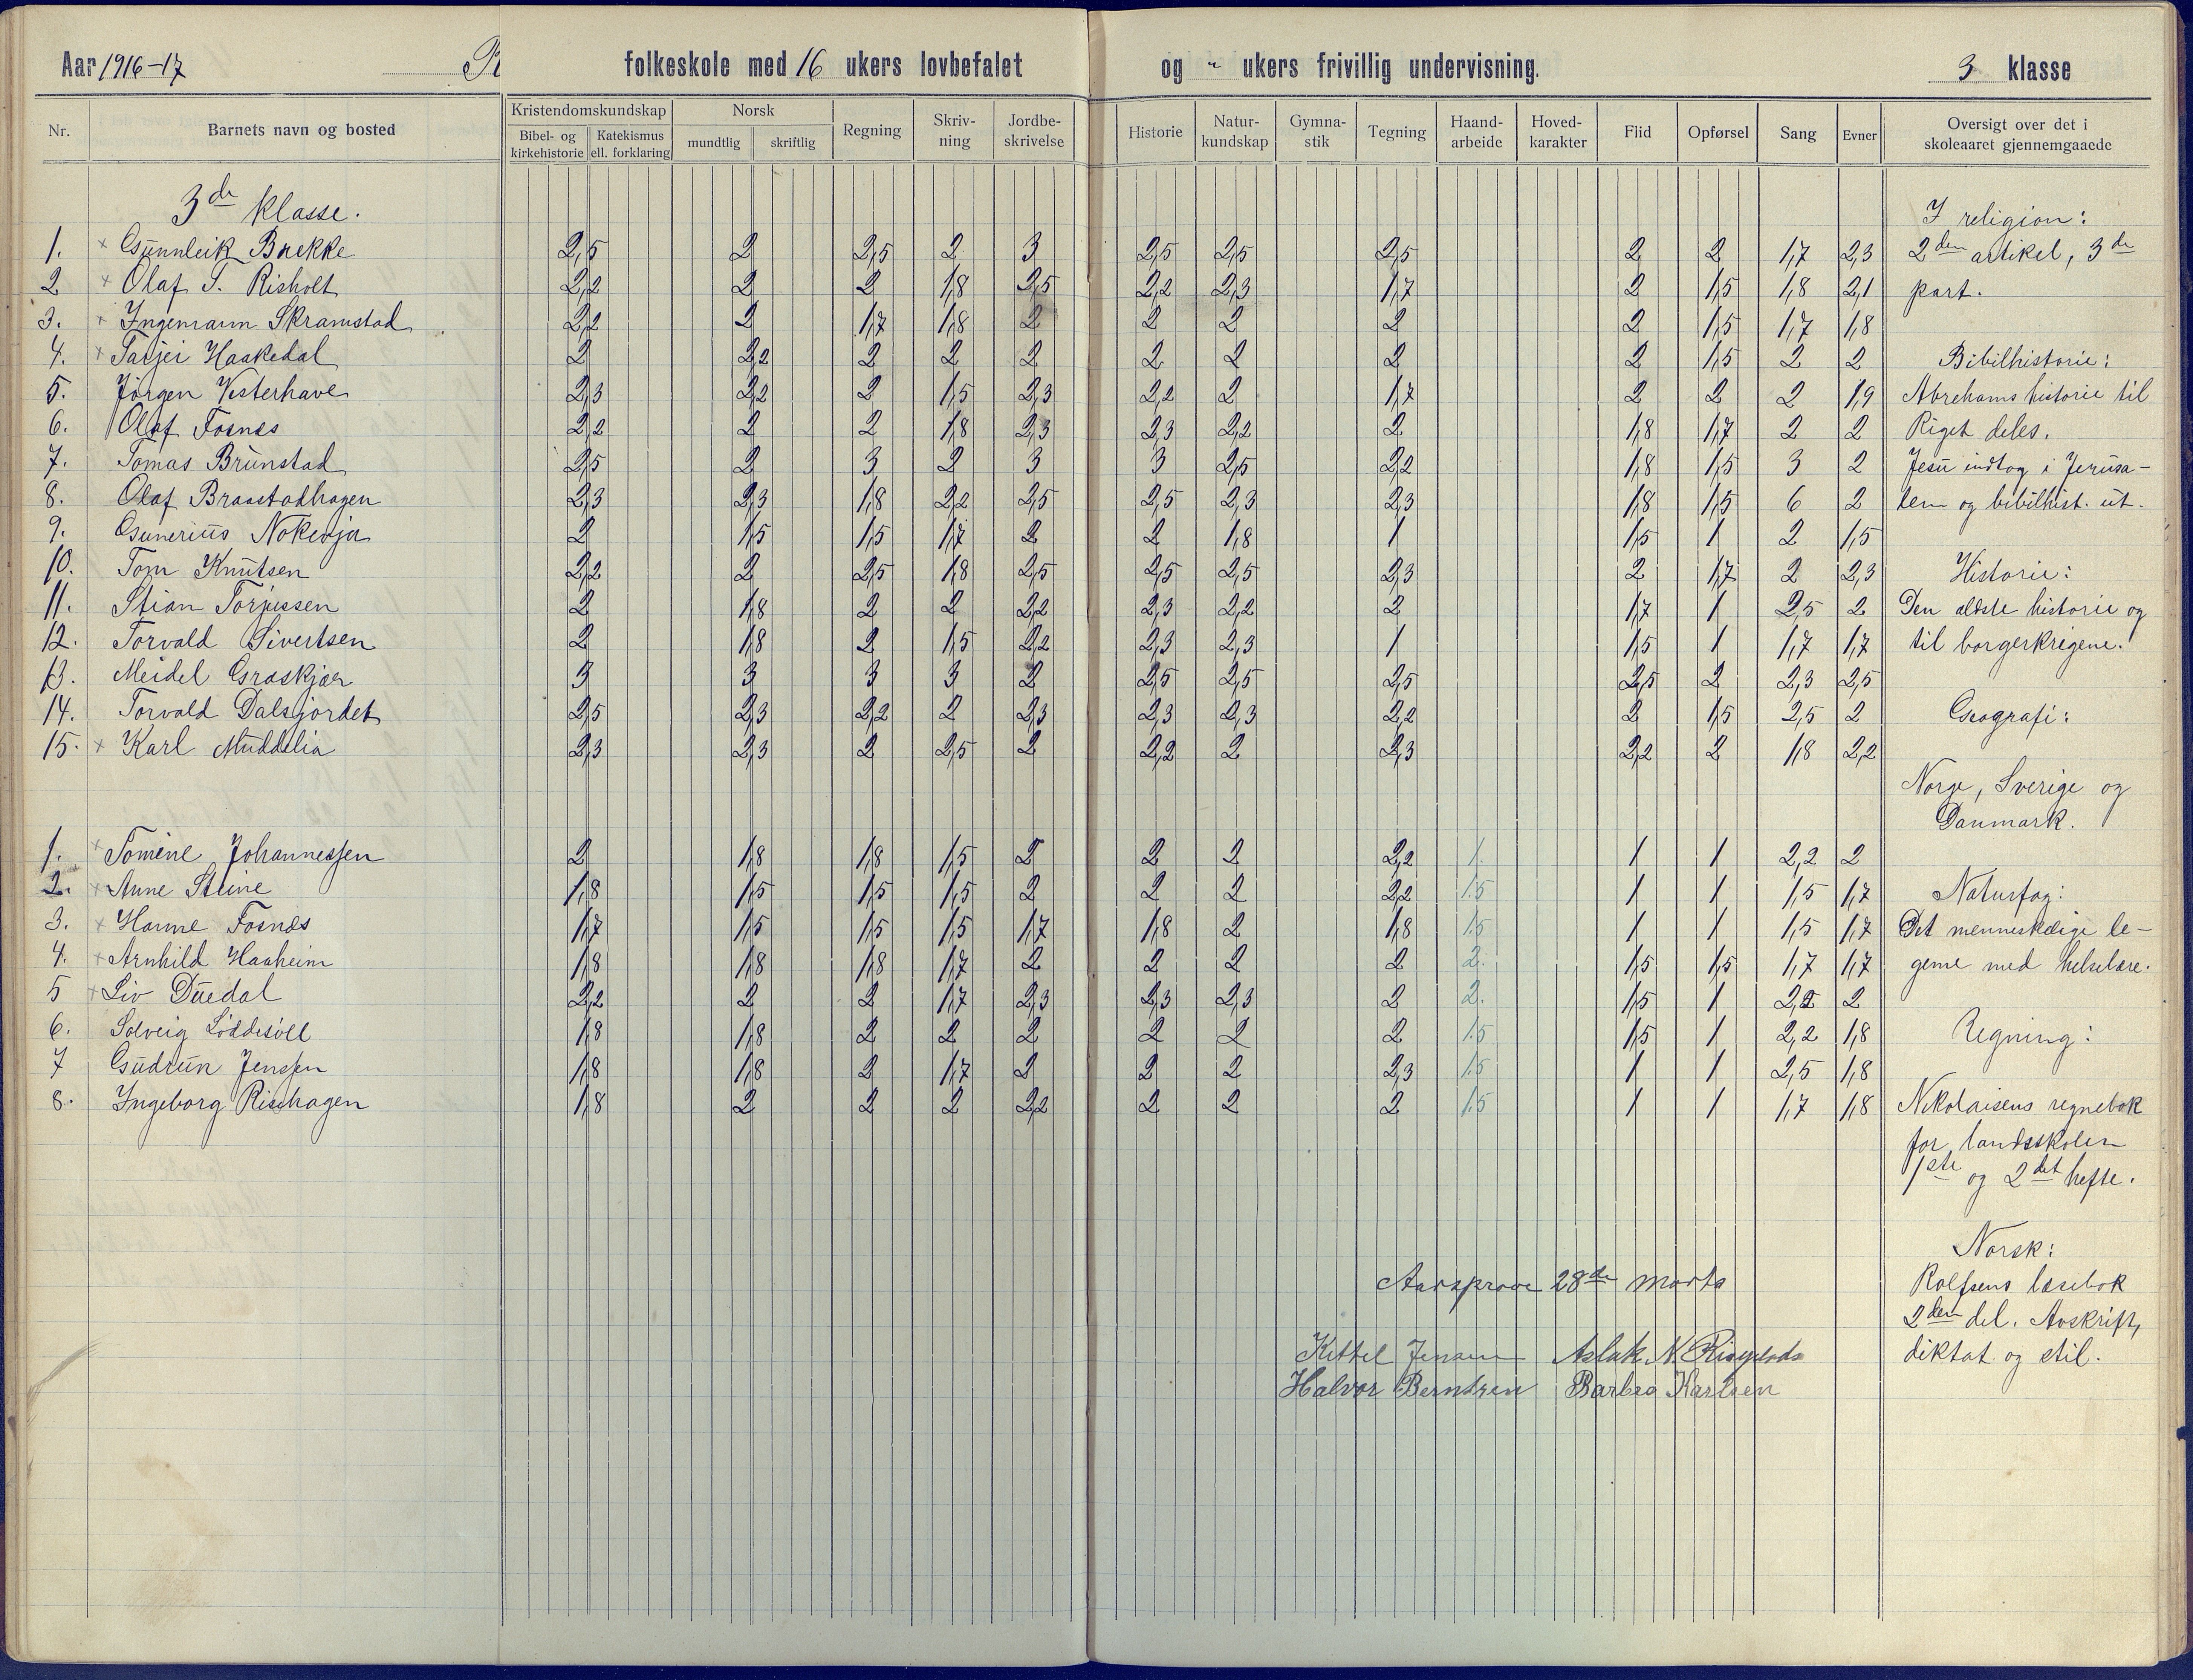 Aar 1916-17 R folkeskole med 16 ukers lovbefalet og " ukers frivillig undervisning. 3 klasse
Nr. Barnets navn og bosted Kristendomskundskap Bibel- og kirkehistorie Katekismus ell. forklaring Norsk mundtlig skriftlig Regning Skriv-ning Jordbe-skrivelse Historie Natur-kundskap Gymna-stik Tegning Haand-arbeide Hoved-karakter Flid Opførsel Sang Evner Oversigt over det i skoleaaret gjennemgaaede
3de klasse.
1. × Gunnleik Brekke 2,5 2 2,5 2 3 2,5 2,5 2,5 2 2 1,7 2,3
2 × Olaf T. Risholt 2,2 2 2 1,8 2,5 2,2 2,3 1,7 2 1,5 1,8 2,1
3. × Ingemann Skramstad 2,2 2 1,7 1,8 2 2 2 2 2 1,5 1,7 1,8
4. × Tarjei Haakedal 2 2,2 2 2 2 2 2 2 2 1,5 2 2
5. Jørgen Vesterhave 2,3 2,2 2 1,5 2,3 2,2 2 1,7 2 2 2 1,9
6. Olaf Fosnes 2,2 2 2 1,8 2,3 2,3 2,2 2 1,8 1,7 2 2
7. Tomas Brunstad 2,5 2 3 2 3 3 2,5 2,2 1,8 1,5 3 2
8. Olaf Braastadhagen 2,3 2,3 1,8 2,2 2,5 2,5 2,3 2,3 1,8 1,5 6 2
9. Gunerius 2 1,5 1,5 1,7 2 2 1,8 1 1,5 1 2 1,5
10. Tom Knutsen 2,2 2 2,5 1,8 2,5 2,5 2,5 2,3 2 1,7 2 2,3
11. Stian Torjussen 2 1,8 2 2 2,2 2,3 2,2 2 1,7 1 2,5 2
12. Torvald Sivertsen 2 1,8 2 1,5 2,2 2,3 2,3 1 1,5 1 1,7 1,7
13. Meidel Graskjær 3 3 3 3 2 2,5 2,5 2,5 2,5 2 2,3 2,5
14. Torvald Dalsjordet 2,5 2,3 2,2 2 2,3 2,3 2,3 2,2 2 1,5 2,5 2
15. × Karl Muddelia 2,3 2,3 2 2,5 2 2,2 2 2,3 2,2 2 1,8 2,2
1. × Tomine Johannessen 2 1,8 1,8 1,5 2 2 2 2,2 1. 1 1 2,2 2
2. × Anne Stiine 1,8 1,5 1,5 1,5 2 2 2 2,2 1.5 1 1 1,5 1,7
3. × Hanne Fosnes 1,7 1,5 1,5 1,5 1,7 1,8 2 1,8 1.5 1 1 1,5 1,7
4. × Arnhild Haaheim 1,8 1,8 1,8 1,7 2 2 2 2 2. 1,5 1,5 1,7 1,7
5 × Liv Duedal 2,2 2 2 1,7 2,3 2,3 2,3 2 2. 1,5 1 2,2 2
6. Solveig Løddesøll 1,8 1,8 2 2 2 2 2 2 1.5 1,5 1 2,2 1,8
7 Gudrun Jenssen 1,8 1,8 2 1,7 2 2 2 2,3 1.5 1 1 2,5 1,8
8. Ingeborg Rishagen 1,8 2 2 2 2,2 2 2 2 1.5 1 1 1,7 1,8
I religion:
2den artikel, 3de
part.
Bibilhistorie:
Abrehams historie til
Riget deles.
Jesu indtog i Jerusa-
lem og bibilhist. ut.
Historie:
Den ældste historie og
til borgerkrigene.
Geografi:
Norge, Sverige og
Danmark.
Naturfag:
Det menneskelige le-
geme med helselære.
Regning:
Nikolaisens regnebok
for landsskolen
1ste og 2det hefte.
Norsk:
Rolfsens læsebok
2den del. Avskrift,
diktat og stil.
Aarsprøve 28de marts
Kittel Jensen Aslak N.
Halvor Berntsen Barbro Karlsen